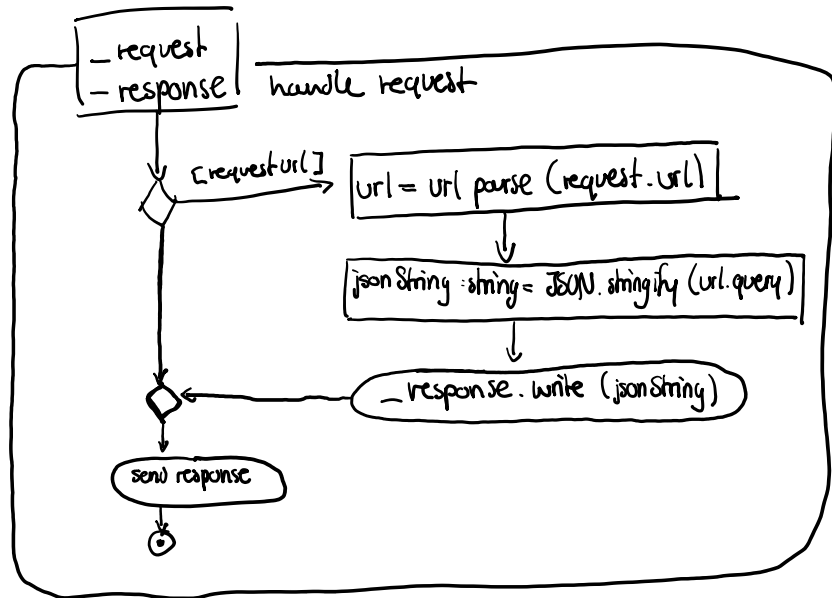 _request
_response
handle request
[requesturl]
url = url parse (request.url)
jsonString :string = JSON.stringify (url.query)
_response.write (jsonString)
send response